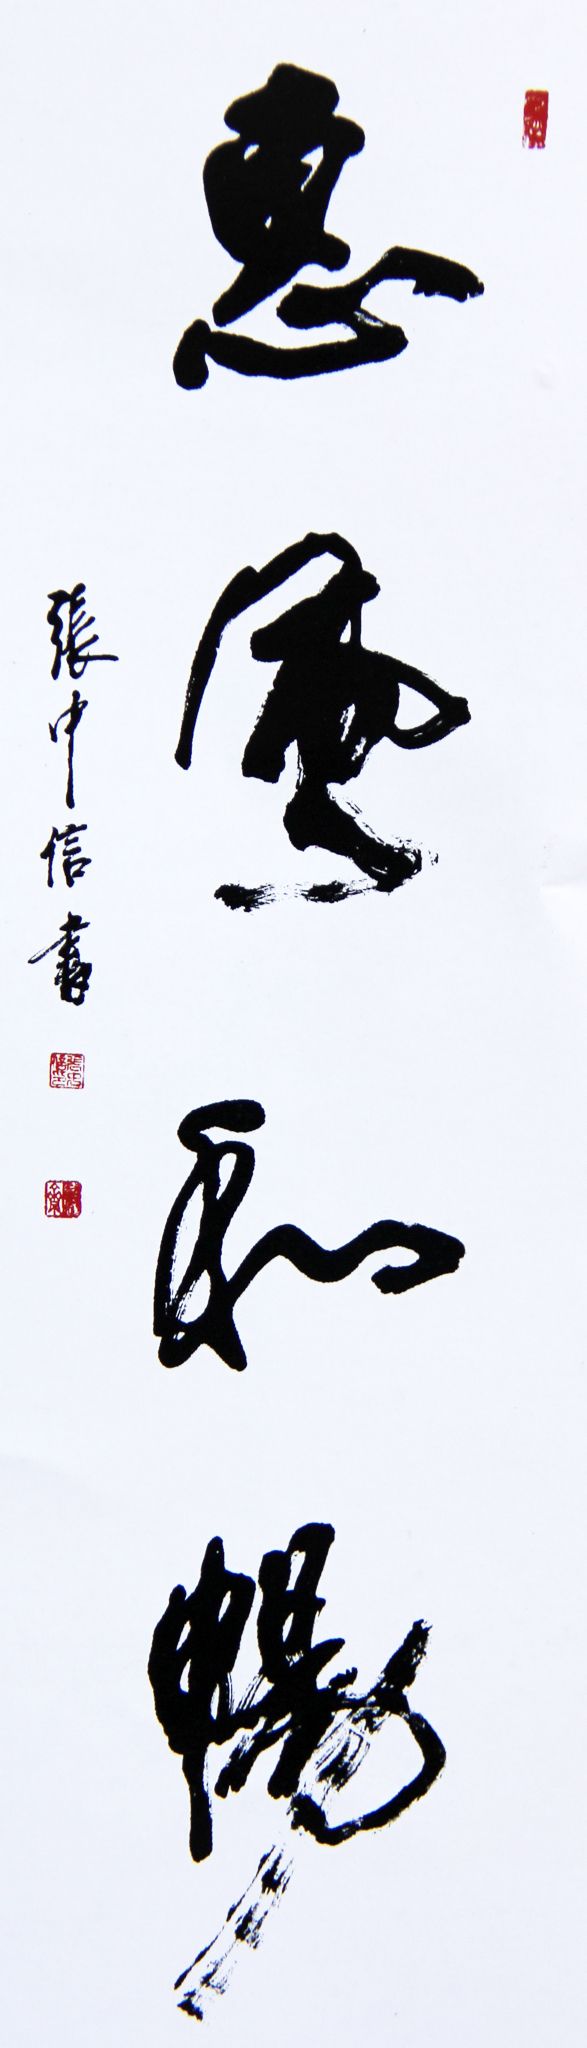 惠風和暢
張中信書